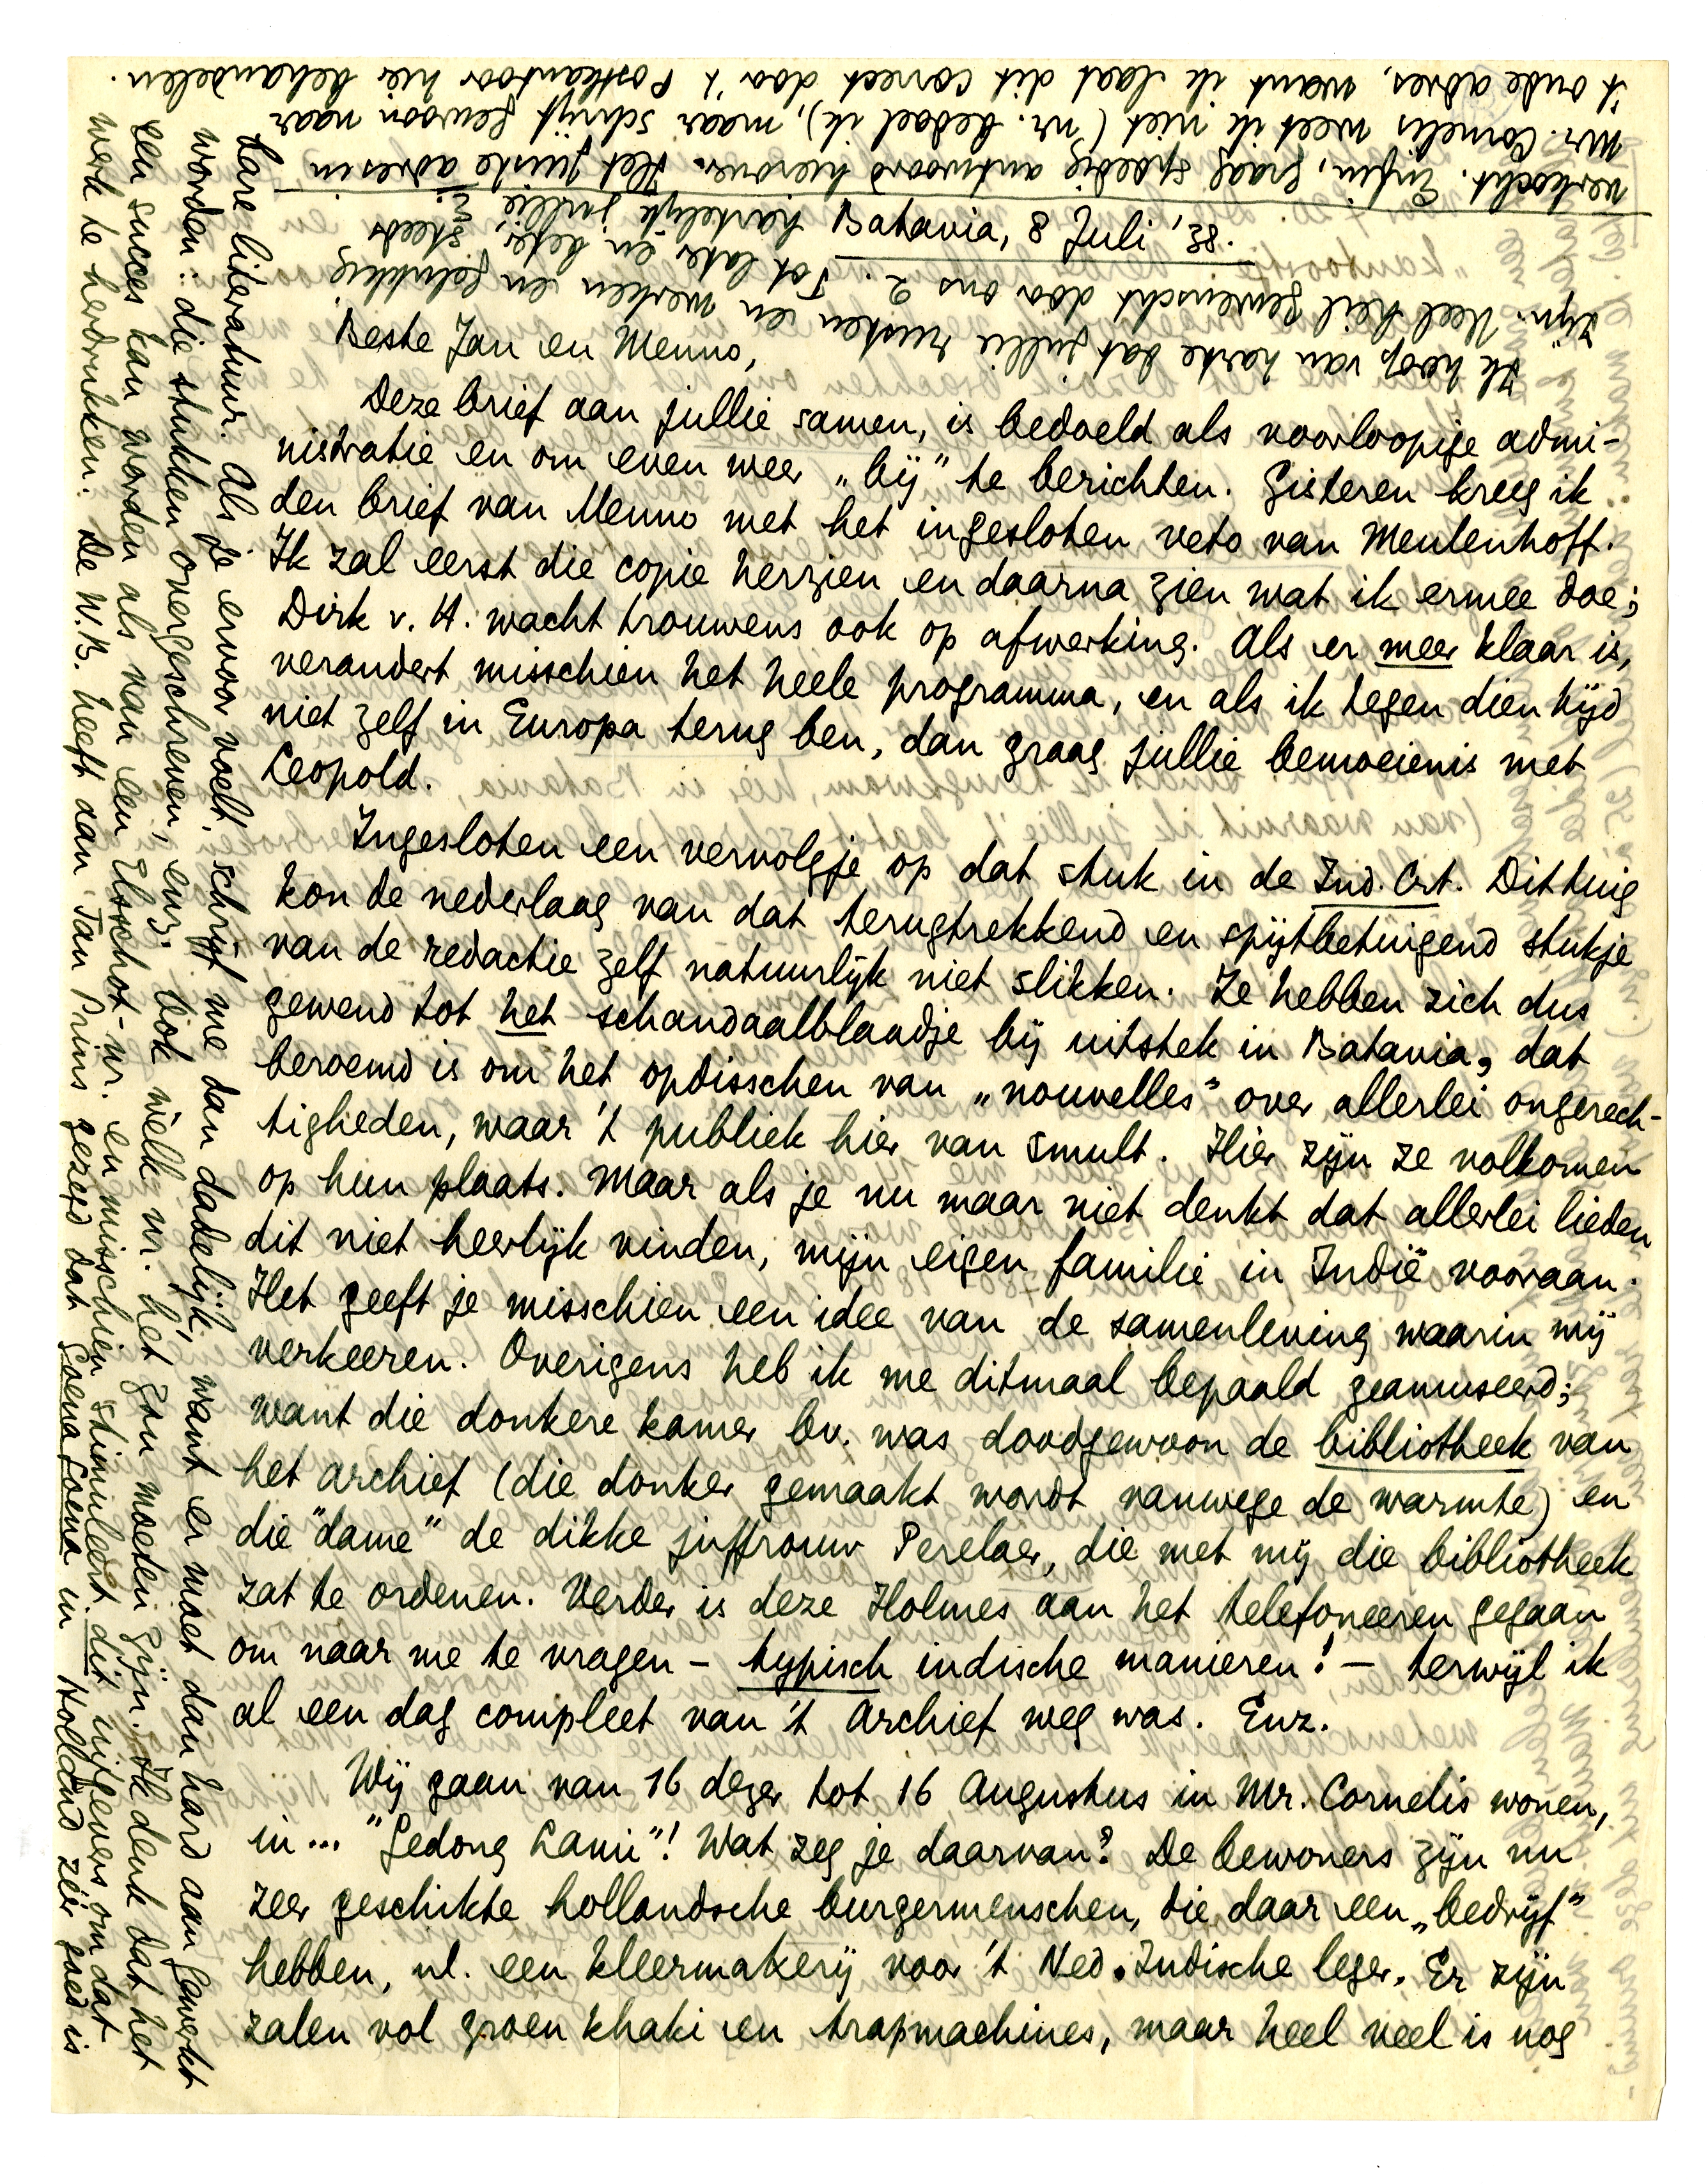 Batavia, 8 Juli, '38.
Beste Jan en Menno,
Deze brief aan jullie samen, is bedoeld als voorloopige admi-
nistratie en om even weer „bij" te berichten. Gisteren kreeg ik
den brief van Menno met het ingesloten veto van Meulenhoff.
Ik zal eerst die copie herzien en daarna zien wat ik ermee doe;
Dirk v. H. wacht trouwens ook op afwerking. Als er meer klaar is,
verandert misschien het heele programma, en als ik tegen dien tijd
niet zelf in Europa terug ben, dan graag jullie bemoeienis met
Leopold.
Ingesloten een vervolgje op dat stuk in de Ind. Crt. Dit tuig
kon de nederlaag van dat terugtrekkend en spijtbetuigend stukje
van de redactie zelf natuurlijk niet slikken. Ze hebben zich dus
gewend tot het schandaalblaadje bij uitstek in Batavia, dat
beroemd is om het opdisschen van „nouvelles" over allerlei ongerech-
tigheden, waar 't publiek hier van smult. Hier zijn ze volkomen
op hun plaats. Maar als je nu maar niet denkt dat allerlei lieden
dit niet heerlijk vinden, mijn eigen familie in Indië vooraan.
Het geeft je misschien een idee van de samenleving waarin wij
verkeeren. Overigens heb ik me ditmaal bepaald geamuseerd;
want die donkere kamer bv. was doodgewoon de bibliotheek van
het archief (die donker gemaakt wordt vanwege de warmte) en
die "dame" de dikke juffrouw Perelaer, die met mij die bibliotheek
zat te ordenen. Verder is deze Holmes aan het telefoneeren gegaan
om naar me te vragen – typisch indische manieren! – terwijl ik
al een dag compleet van 't Archief weg was. Enz.
Wij gaan van 16 dezer tot 16 Augustus in Mr. Cornelis wonen,
in... "Gedong Lami"! Wat zeg je daarvan? De bewoners zijn nu
zeer geschikte hollandsche burgermenschen, die daar een „bedrijf"
hebben, nl. een kleermakerij voor 't Ned. Indische leger. Er zijn
zalen vol groen khaki en trapmachines, maar heel veel is nog
verkocht. Enfin, graag spoedig antwoord hierover. Het juiste adres in
Mr. Cornelis weet ik niet (nr. bedoel ik), maar schrijf gewoon naar
't oude adres, want ik laat dit correct door 't Postkantoor hier behandelen.
Ik hoop van harte dat jullie rusten en werken en gelukkig
zijn. Veel heil gewenscht door ons 2. Tot later en beter, steeds
hartelijk jullie
E.
bare literatuur. Als je ervoor voelt, schrijf me dan dadelijk, want er moet dan hard aan gewerkt
worden: die stukken overgeschreven, enz. Ook welk nr. het zou moeten zijn. Ik denk dat het
een succes kan worden als van een Elsschot-nr. en misschien stimuleert dit uitgevers om dat
werk te herdrukken. De W.B. heeft aan Jan Prins gezegd dat Goena Goena in Holland zéér goed is